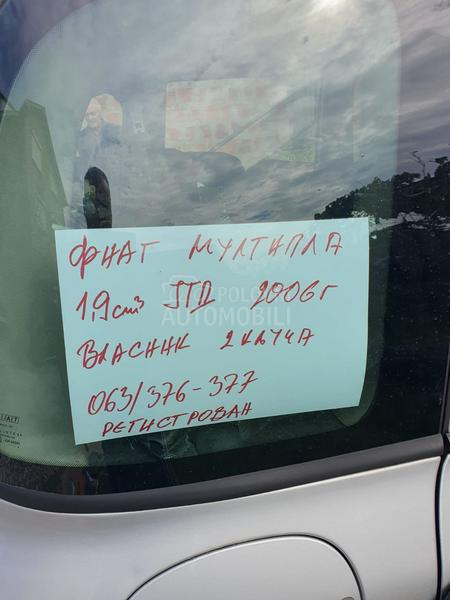 ФИАТ МУЛТИПЛА
1,9 cm³ JTD 2006г
ВЛАСНИК 2 КЉУЧА
063/376-377
РЕГИСТРОВАН
POLOVNI
AUTOMOBILI